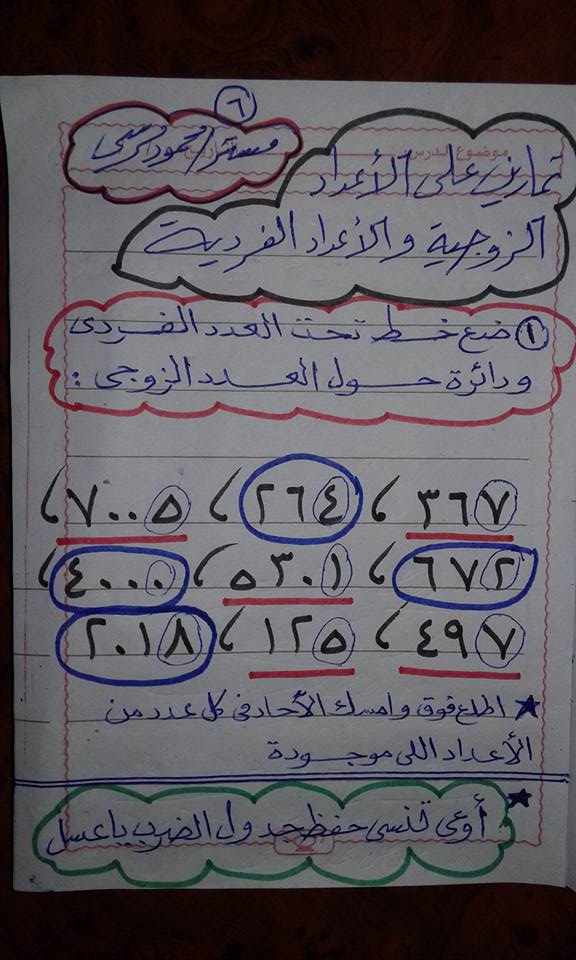 ٦
مستر / محمود المرسى
موضوع الدرس
تمارين على الأعداد
الزوجية والأعداد الفردية
١ ضع خط تحت العدد الفردى
ودائرة حول العدد الزوجى :
٣٦٧ ، ٢٦٤ ، ٧٠٠٥ ،
٦٧٢ ، ٥٣٠١ ، ٤٠٠٠ ،
٤٩٧ ، ١٢٥ ، ٢٠١٨
★ اطلع فوق وامسك الأحاد فى كل عدد من
الأعداد اللى موجودة
★ أوعى تنسى حفظ جدول الضرب يا عسل